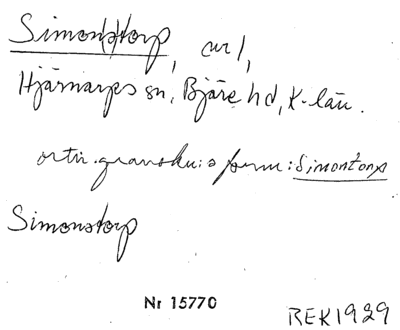 Simon(s)torp, av 1,
Hjärnarps sn, Bjäre hd, K-län.
ortn.gransku:s form: Simontorp
Simonstorp
Nr 15770
BEK1929